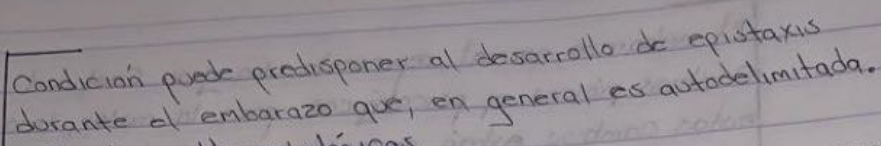 Condición puede predisponer al desarrollo de epistaxis
durante el embarazo que, en general es autodelimitada.